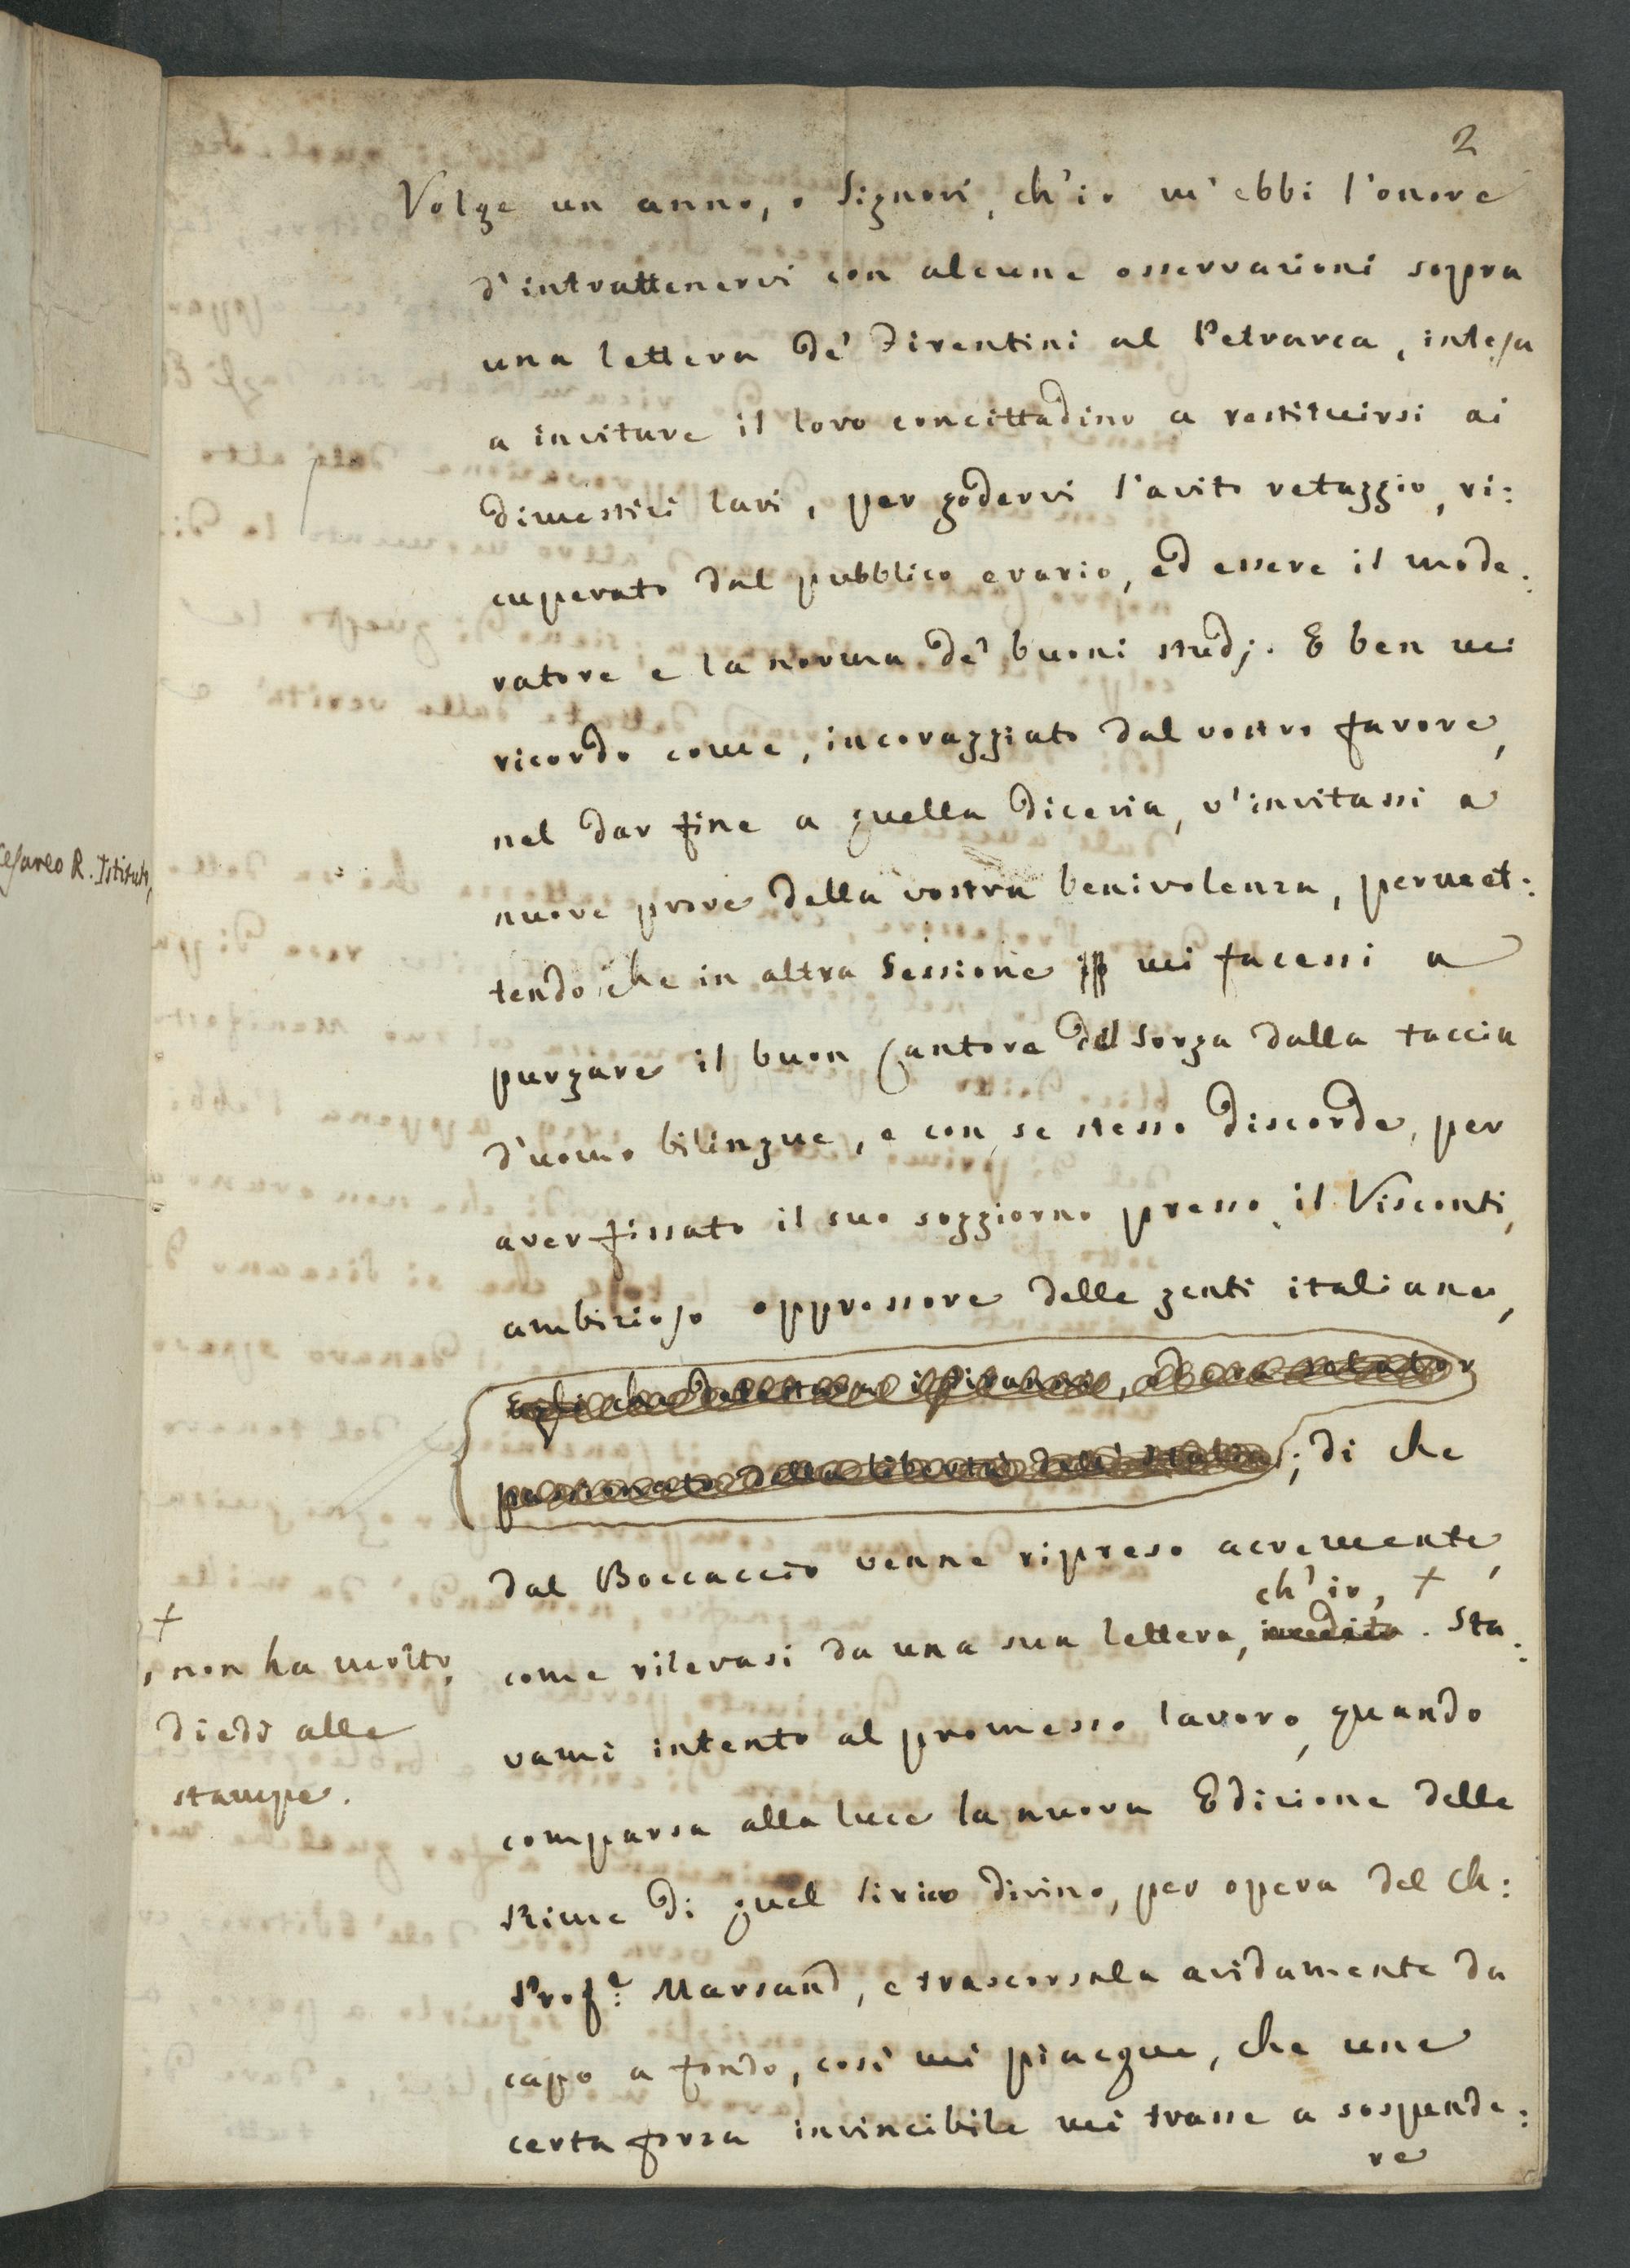 2
Volge un anno, o Signori, ch'io m'ebbi l'onore
d'intrattenervi con alcune osservazioni sopra
una lettera de' Firentini al Petrarca, intesa
a invitare il loro concittadino a restituirsi ai
dimestici lari, per godervi l'avito retaggio, ri:
cuperato dal pubblico erario, ed essere il mode:
ratore e la norma de' buoni studj. E ben mi
ricordo come, incoraggiato dal vostro favore,
nel dar fine a quella diceria, v'invitassi a
nuove prove della vostra benivolenza, permet:
tendo che in altra Sessione mi facessi a
purgare il buon Cantore del Sorga dalla taccia
d'uomo bilingue, e con se stesso discorde, per
aver fissato il suo soggiorno presso il Visconti,
ambizioso oppressore delle genti italiane,
Egli che detestava i Tiranni, ed era
passionato della libertà dell'Italia; di che
dal Boccaccio venne ripreso acremente,
ch'io, +
come rilevasi da una sua lettera, inedita. Sta:
vami intento al promesso lavoro, quando
comparsa alla luce la nuova Edizione delle
Rime di quel lirico divino, per opera del Ch:
Prof.e Marsand, e trascorsala avidamente da
capo a fondo, così mi piacque, che una
certa forza invincibile mi trasse a sospende:
re
+
, non ha molto,
diedi alle
stampe.
cesareo R. Istituto,